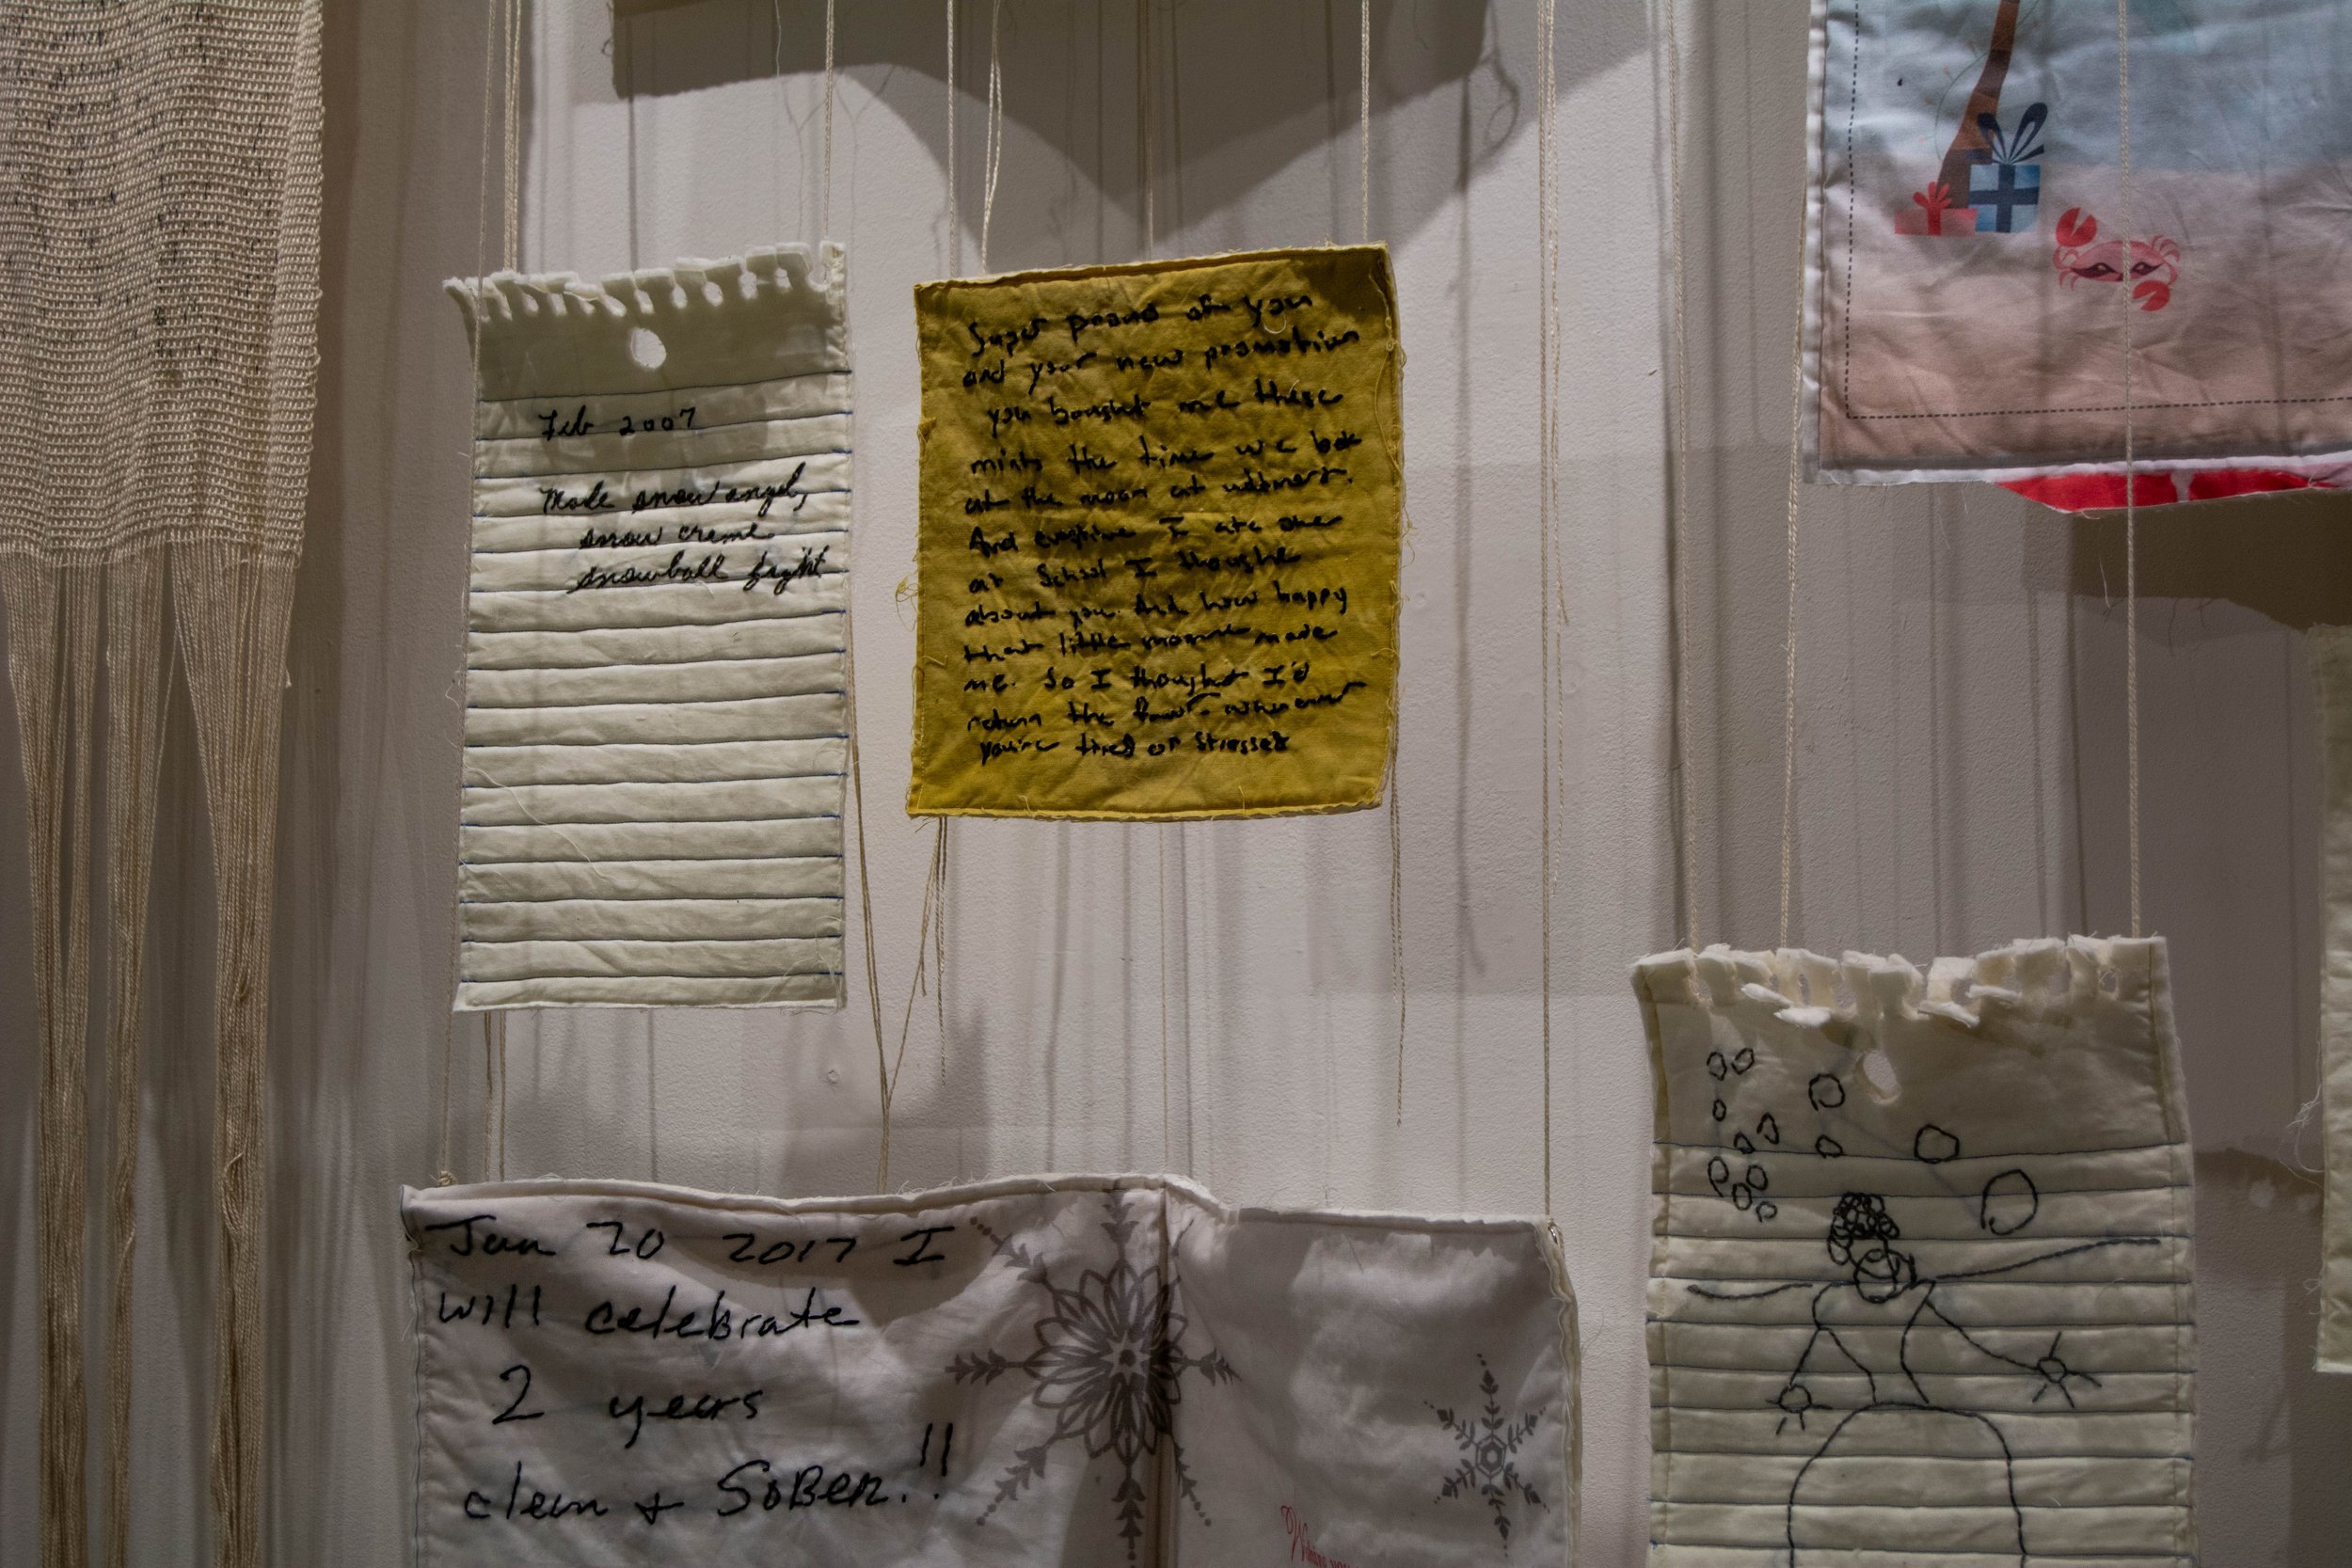 Feb 2007
Made snow angel,
snow creme
snowball fight
Super proud of you
and your new promotion
you bought me these
mints the time we
at the moon at
And everytime I ate one
at School I thought
about you. And how happy
that little moment made
me. So I thought I'd
return the favor whenever
you're tired or stressed
Jan 20 2017 I
will celebrate
2 years
clean + SOBER.!!